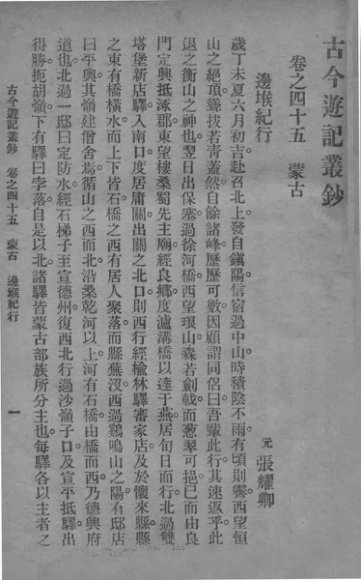 古今遊記叢鈔
卷之四十五　蒙古
邊堠紀行
元　張耀卿
歲丁未夏六月初吉赴召北上發自鎭陽信宿過中山時積陰不雨有頃開霽西望恒
山之絕頂聳拔若靑蓋然自餘諸峰歷歷可數因顧謂同侶曰吾輩此行其速返乎此
退之衡山之神也翌日出保塞過徐河橋西望琅山森若劍戟而葱翠可挹已而由良
門定興抵涿郡東望樓桑蜀先主廟經良鄕度瀘溝橋以達于燕居旬日而行北過雙
塔堡新店驛入南口度居庸關出關之北口則西行經榆林驛審家店及於懷來縣縣
之東有橋橫水而上下皆石橋之西有居人聚落而縣蕪沒西過鷄鳴山之陽有邸店
曰平輿其嶺建僧舍焉循山之西而北沿桑乾河以上河有石橋由橋而西乃德興府
道也北過一邸曰定防水經石梯子至宣德州復西北行過沙嶺子口及宣平抵驛出
得勝扼胡嶺下有驛曰孛落自是以北諸驛皆蒙古部族所分主也每驛各以主者之
古今遊記叢鈔　卷之四十五　蒙古　邊堠紀行　一